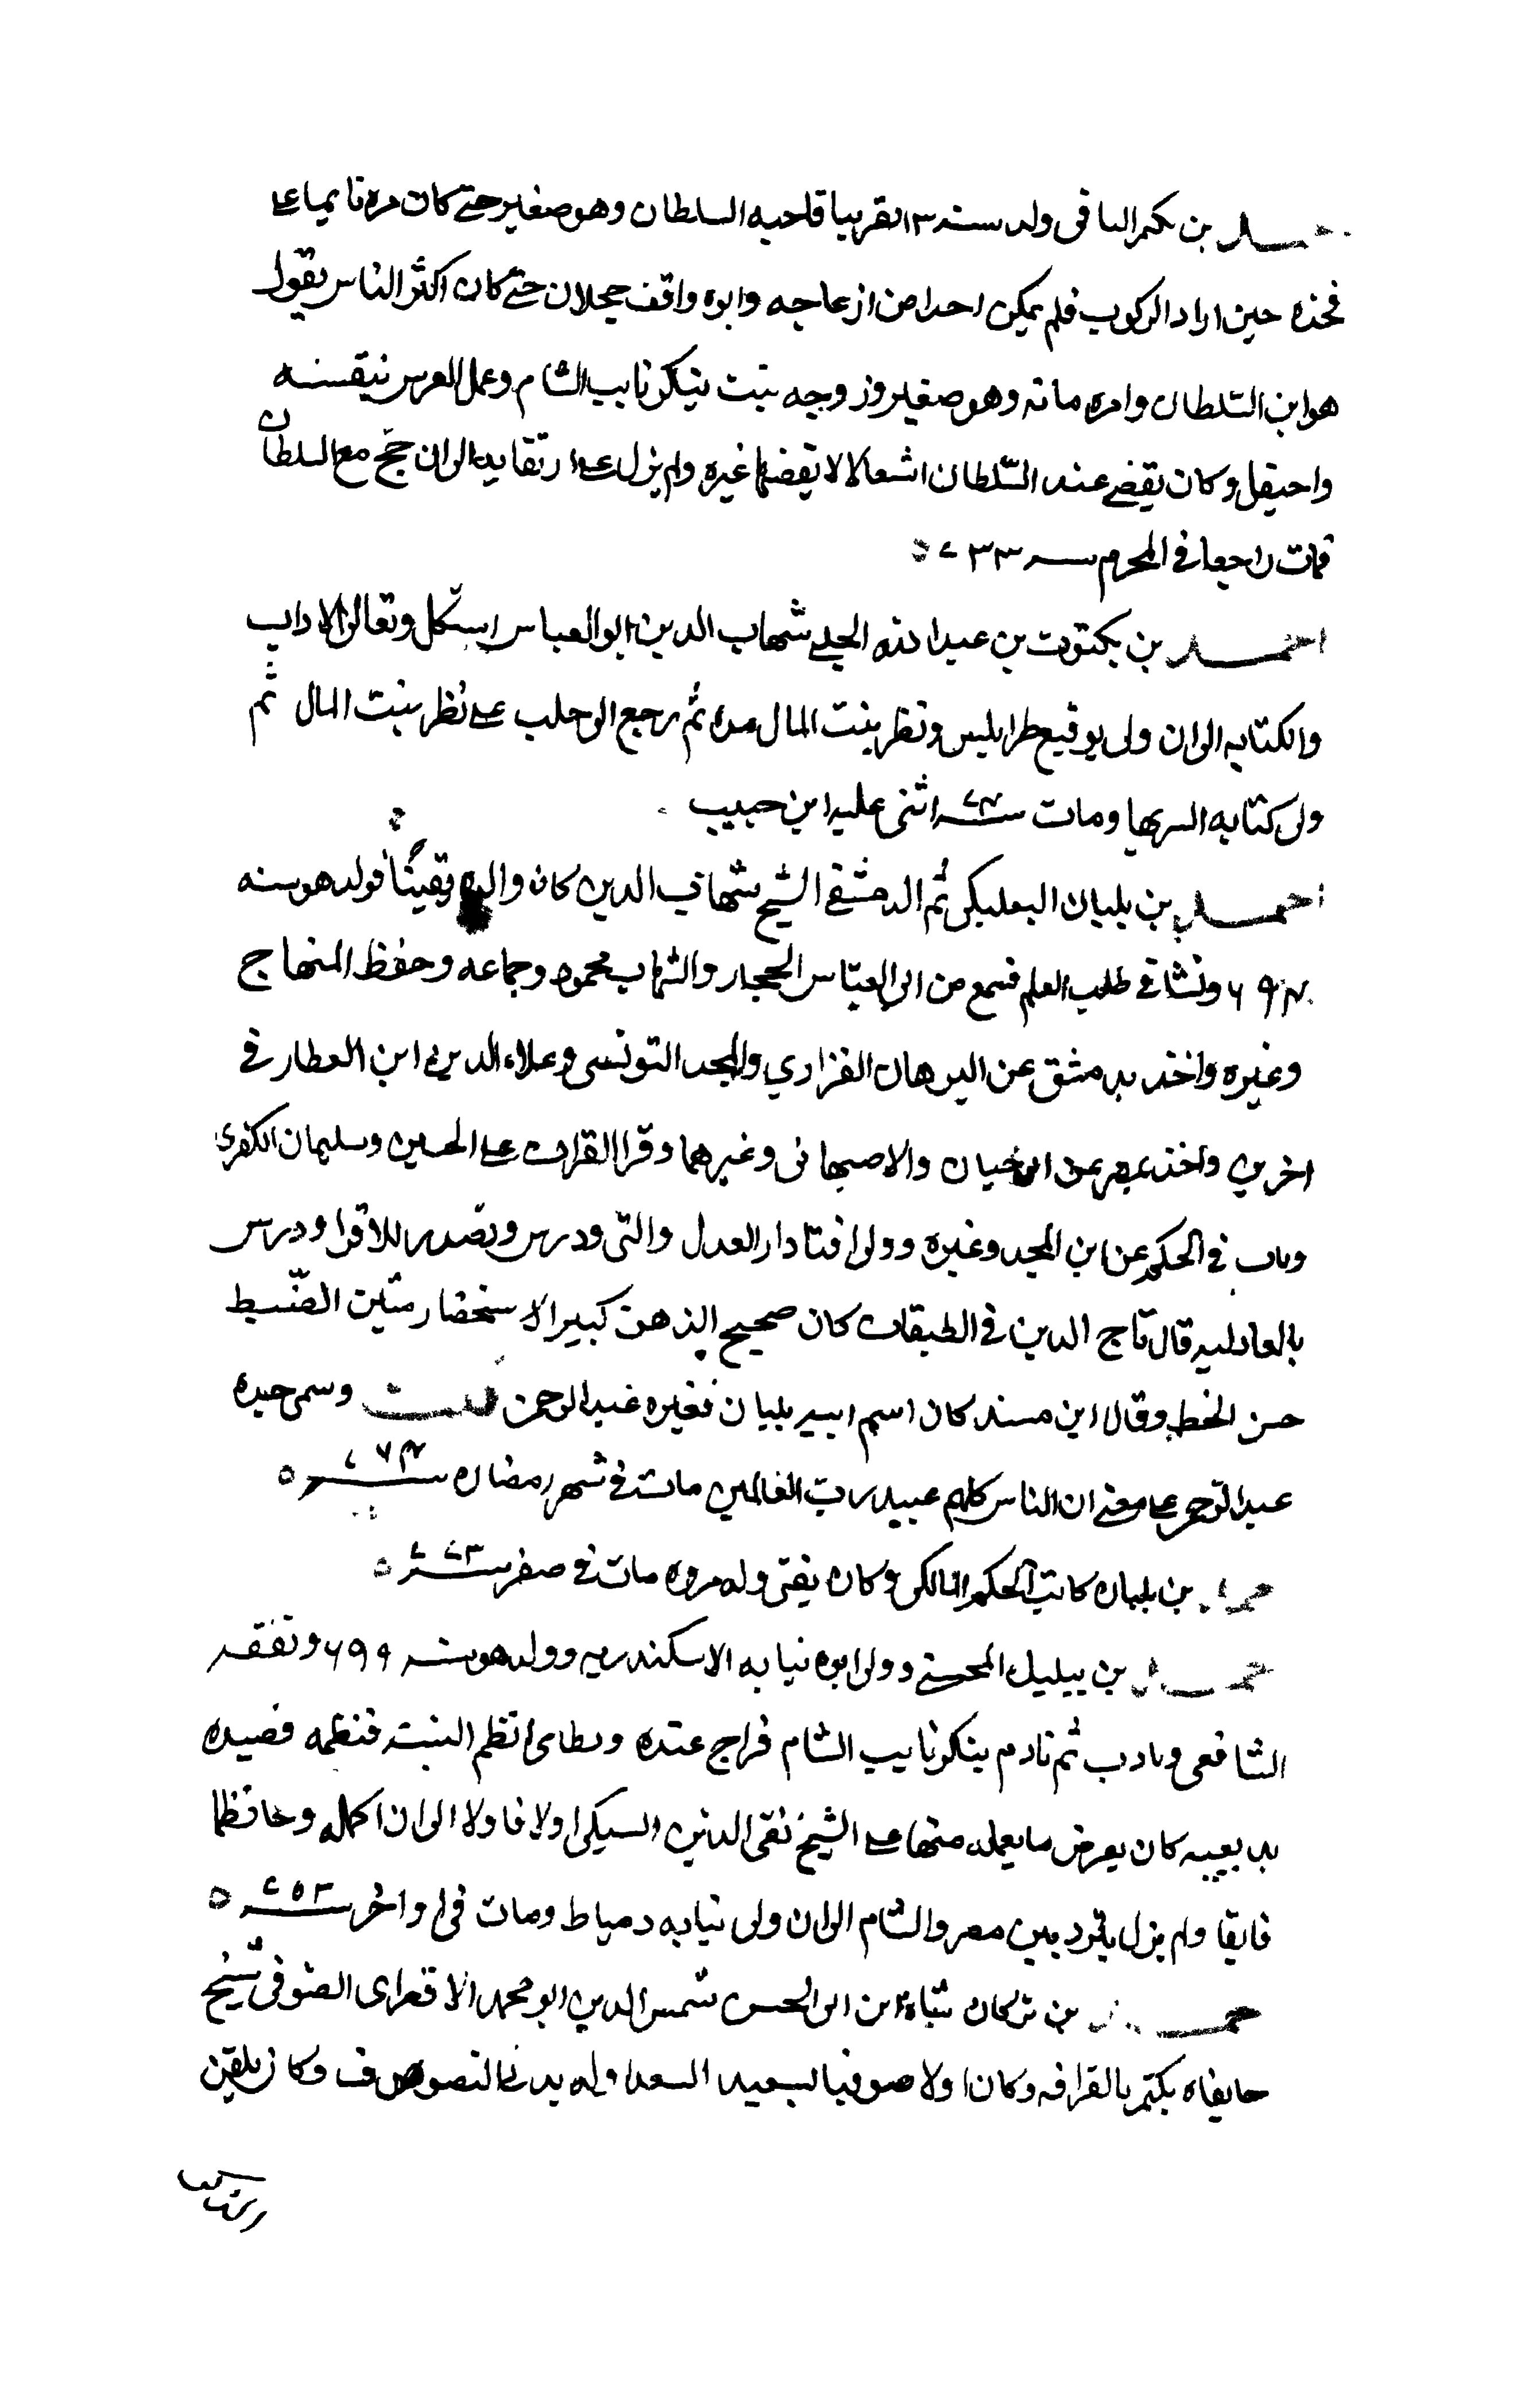 احمد بن بكتمر الساقي ولد سنة ١٣ تقريبا فاحبه السلطان وهو صغير حتى كان مرة نايما على
فخذه حين اراد الركوب فلم يمكن احدا من ازعاجه وابوه واقف حجلان حتى كان اكثر الناس يقول
هو ابن السلطان وامره مائة وهو صغير وزوجه بنت تنكز نايب الشام وعمل العرس بنفسه
واحتفل وكان يقضي عند السلطان اشغالا لا يقضها غيره ولم يزل على ارتقايه الى ان حج مع السلطان
فمات راجعا في المحرم سنه ٧٣٣
احمد بن بكتوت بن عبد الله الحلبي شهاب الدين ابو العباس وتعانى الاداب
والكتابه الى ان ولى توقيع طرابلس ونظر بيت المال مده ثم رجع الى حلب على نظر بيت المال ثم
ولى كتابه السر بها ومات سنه اثنى عليه ابن حبيب
احمد بن بلبان البعلبكي ثم الدمشقي الشيخ شهاب الدين كان والده نقيبا فولد هو سنه
٦٩٤ ونشا في طلب العلم فسمع من ابي العباس الحجار والشهاب محمود وجماعه وحفظ المنهاج
وغيره واخذ بدمشق عن البرهان الفزاري والمجد التونسي وعلاء الدين ابن العطار في
اخرين واخذ بمصر عن ابي حيان والاصبهاني وغيرهما وقرا القرات على الحسين وسليمان الكفري
وناب في الحكم عن ابن المجد وغيره وولى افتا دار العدل والتي ودرس وتصدر للاقرا ودرس
بالعادليه قال تاج الدين في الطبقات كان صحيح الذهن كبير الاستحضار متين الضبط
حسن الخط وقال ابن سند كان اسم ابيه بلبان فغيره عبد الرحمن قلت وسمى جده
عبد الرحيم على معنى ان الناس كلهم عبيد رب العالمين مات في شهر رمضان سنه ٧٦٤
احمد بن بلبان كاتب الحكم المالكي وكان يفتي وله مروه مات في صفر سنه ٧٧٣
احمد بن بيليك المحسني وولى ابوه نيابه الاسكندريه وولد هو سنه ٦٩٩ وتفقه
الشافعي وتادب ثم نادم تنكز نايب الشام فراج عنده وتعانى نظم فنظمه قصيده
بديعيه كان يعرض ما يعمله منها على الشيخ تقي الدين السبكي اولا فاولا الى ان اكمله وحافظا
فايقا ولم يزل يتردد بين مصر والشام الى ان ولى نيابه دمياط ومات في اواخر سنه ٧٥٣
احمد بن تركان شاه ابن ابي الحسن شمس الدين ابو محمد الاقصراي الصوفي شيخ
خانقاه بكتمر بالقرافه وكان اولا صوفيا بسعيد السعدا وله يد في التصوف وكان يلقن